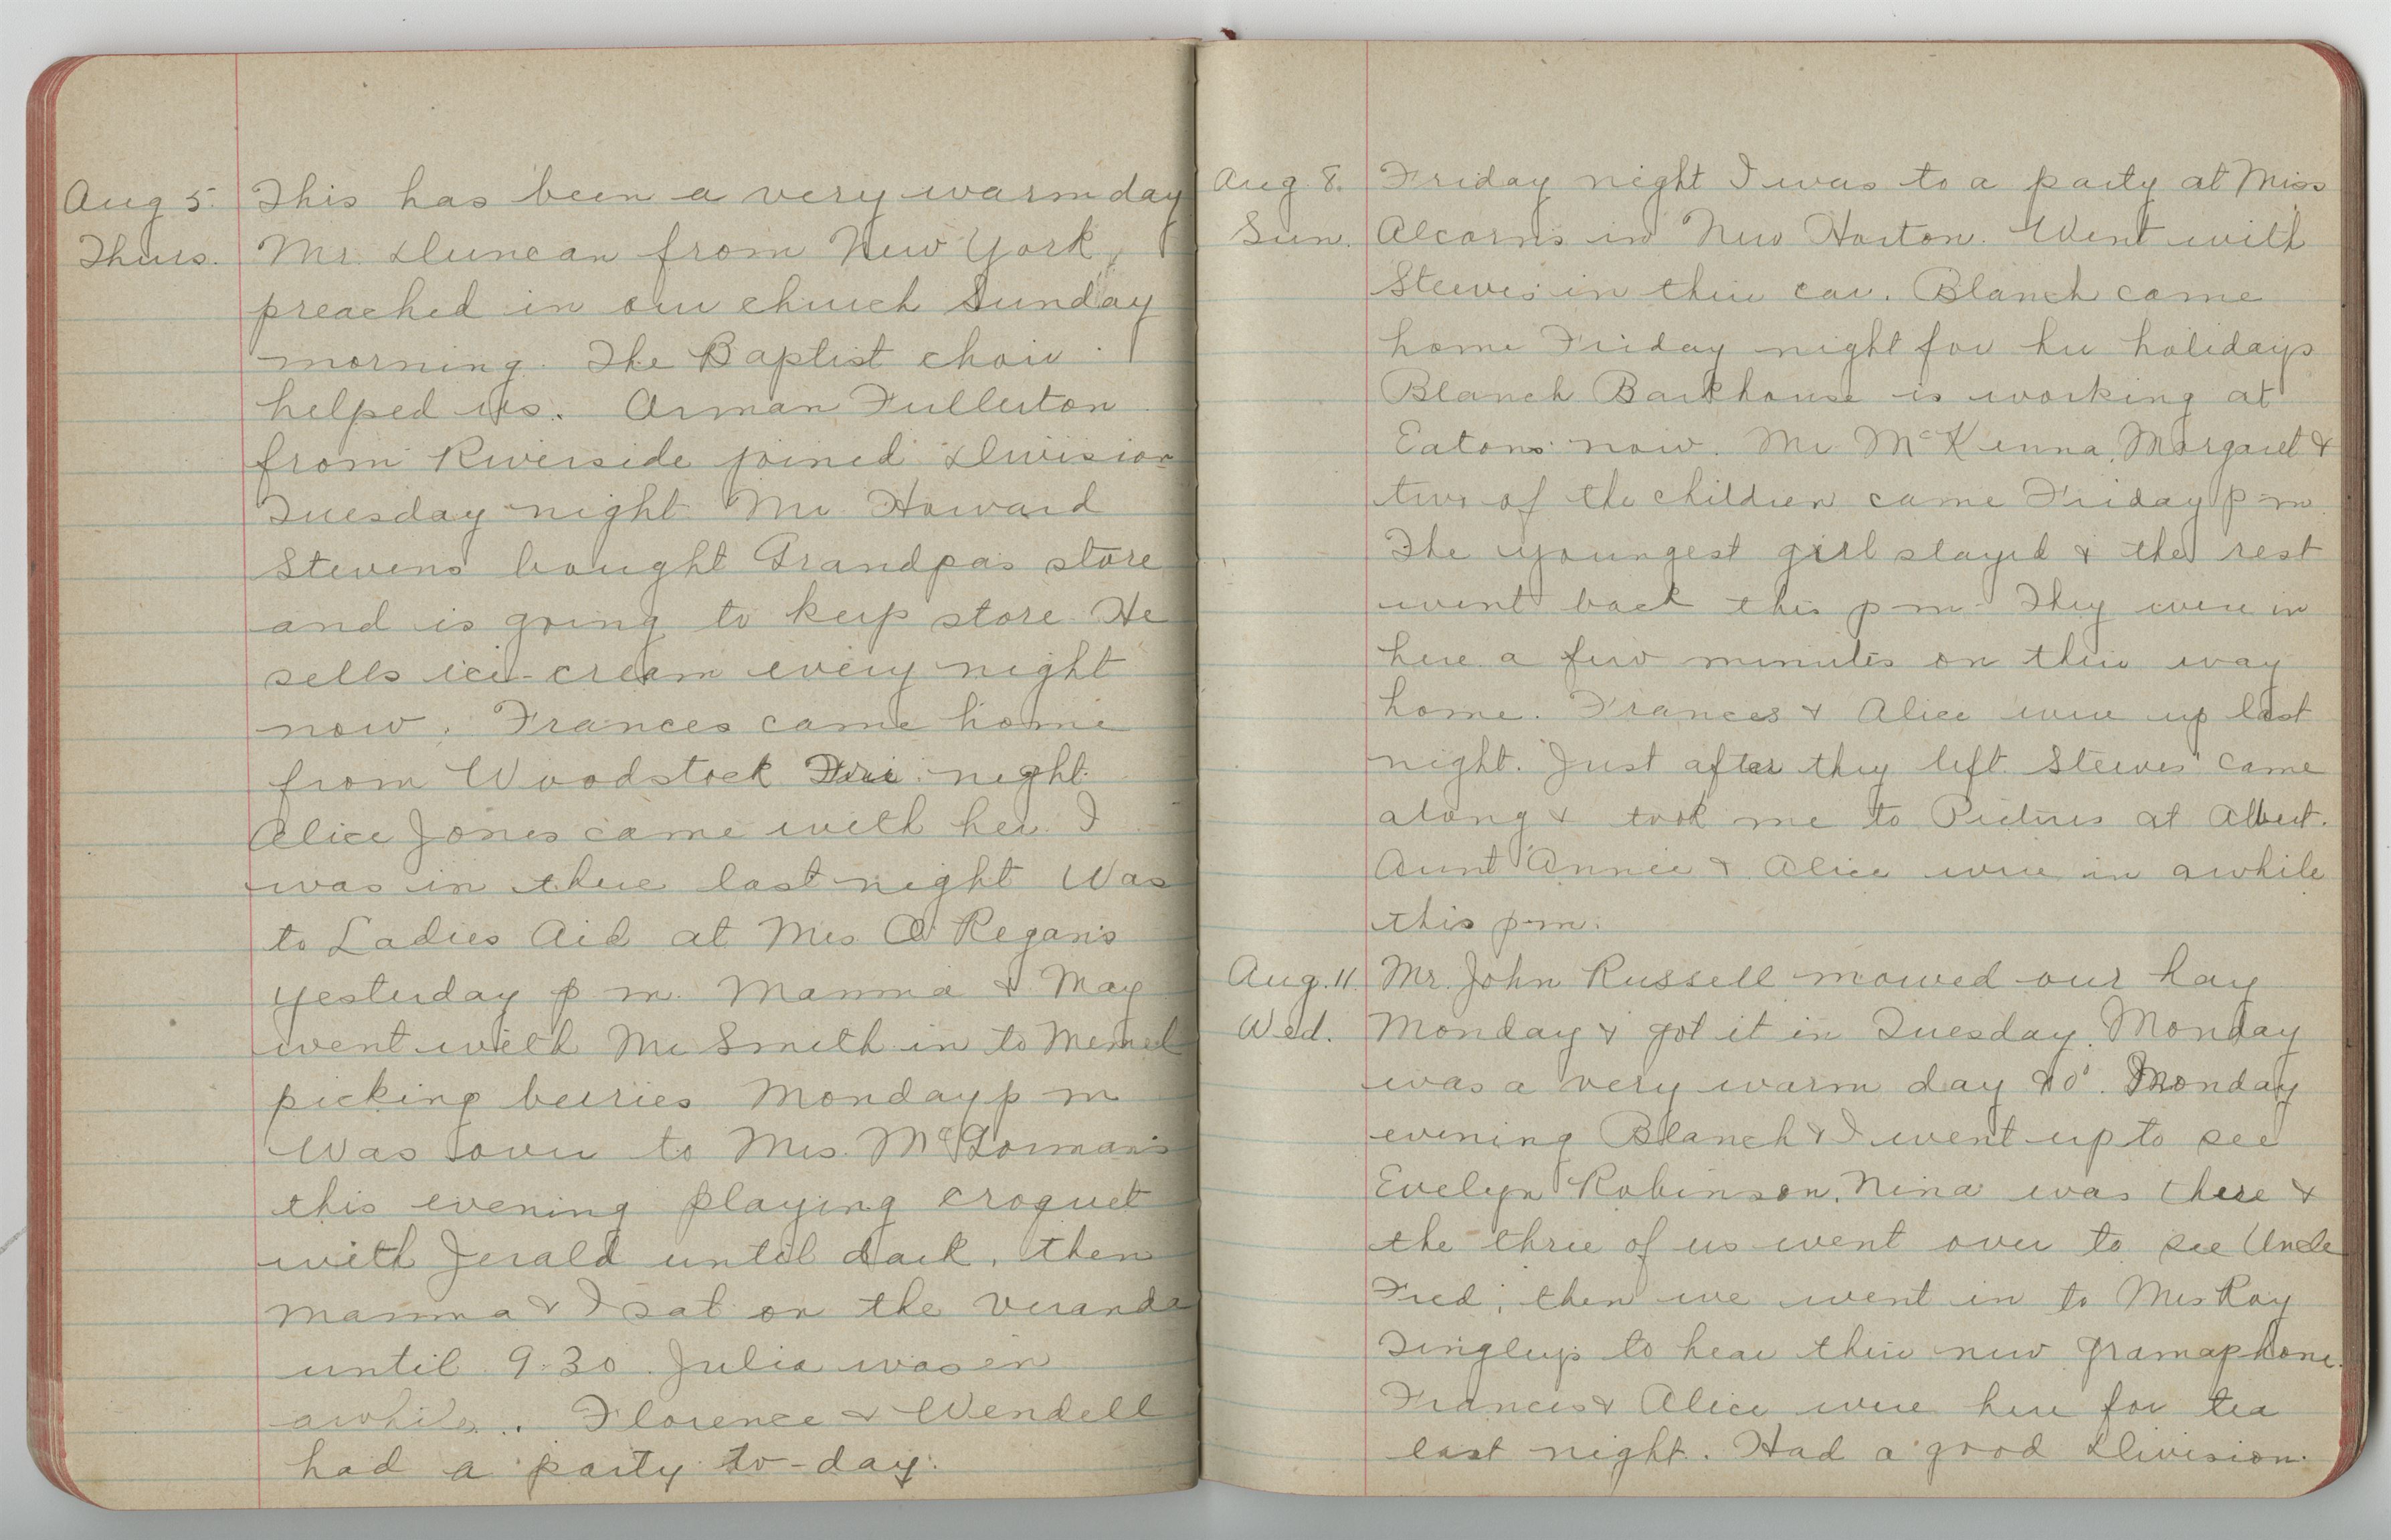 Aug 5. This has been a very warm day
Thurs. Mr. Duncan from New York,
preached in our church Sunday
morning. The Baptist choir
helped us. Arman Fullerton
from Riverside joined Division
Tuesday night Mr Howard
Stevens bought Grandpas store
and is going to keep store. He
sells ice-cream every night
now. Frances came home
from Woodstock Fri. night.
Alice Jones came with her. I
was in there last night Was
to Ladies Aid at Mrs O'Regan's
yesterday p m. Mamma & May
went with Mr Smith in to Memel
picking berries Monday p m
Was over to Mrs. McGorman's
this evening playing croquet
with Jerald until dark, then
mamma & I sat on the veranda
until 9.30. Julia was in
awhile. Florence & Wendell
had a party to-day.
Aug. 8. Friday night I was to a party at Miss
Sun. Alcorn's in New Horton. Went with
Steeves' in their car. Blanch came
home Friday night for her holidays
Blanch Barkhouse is working at
Eatons now. Mr McKenna, Margaret &
two of the children came Friday p-m.
The youngest girl stayed & the rest
went back this p-m- They were in
here a few minutes on their way
home. Frances & Alice were up last
night. Just after they left Steeves' came
along & took me to Pictures at Albert.
Aunt Annie & Alice were in awhile
this p-m.
Aug. 11 Mr. John Russell mowed our hay
Wed. Monday & got it in Tuesday. Monday
was a very warm day 90°. Monday
evening Blanch & I went up to see
Evelyn Robinson. Nina was there &
the three of us went over to see Uncle
Fred; then we went in to Mrs Ray
Tingleys to hear their new gramaphone.
Frances & Alice were here for tea
last night. Had a good Division.